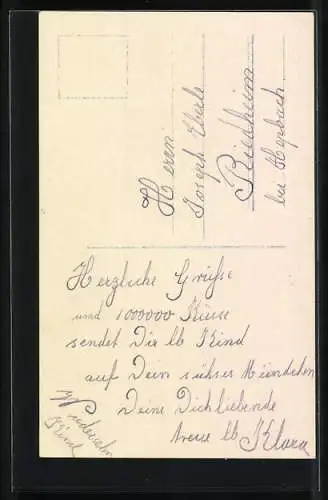 Herrn
Joseph Eberle
Riedheim
bei Hepbach
Herzliche Grüsse
und 1000000 Küsse
sendet Dir lb Kind
auf Dein sühses Mündchen
Deine Dichliebende
treue lb Klara
Wiedersehn
Kind